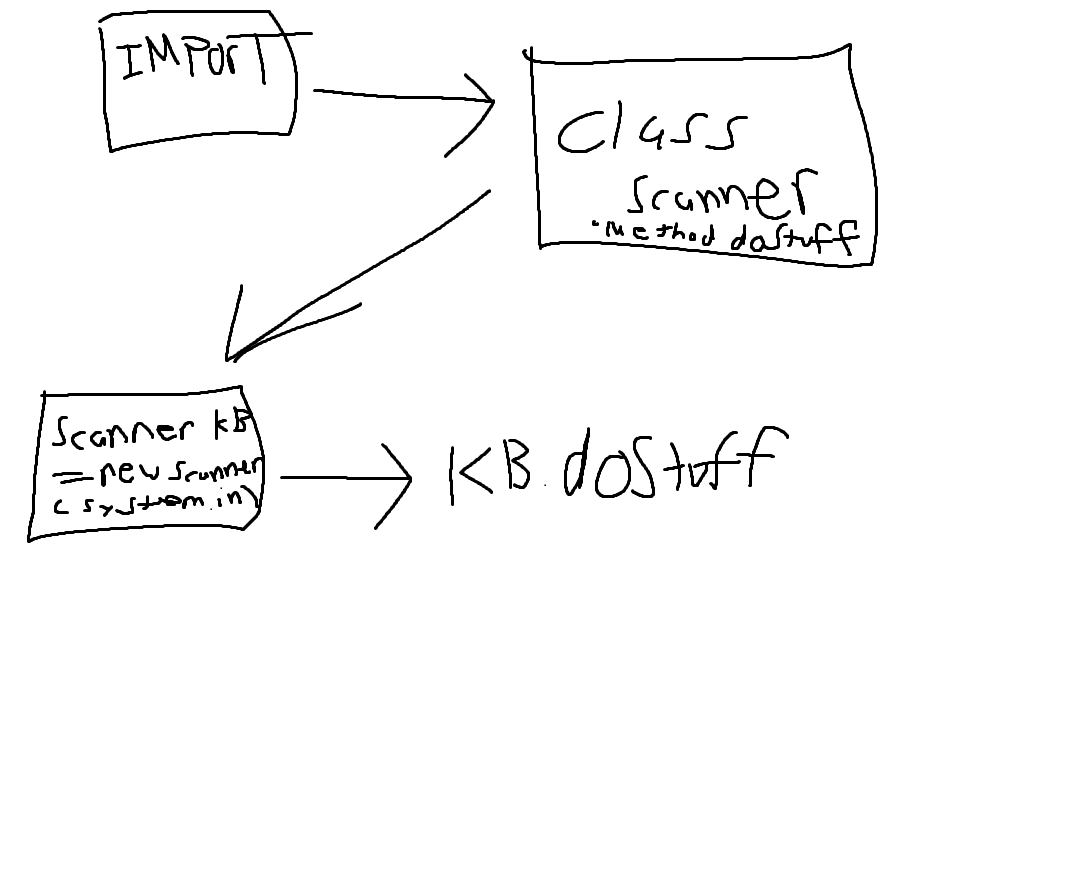 IMPORT
Class
scanner
·method dostuff
Scanner KB
= new scanner
(system.in)
KB.doStuff